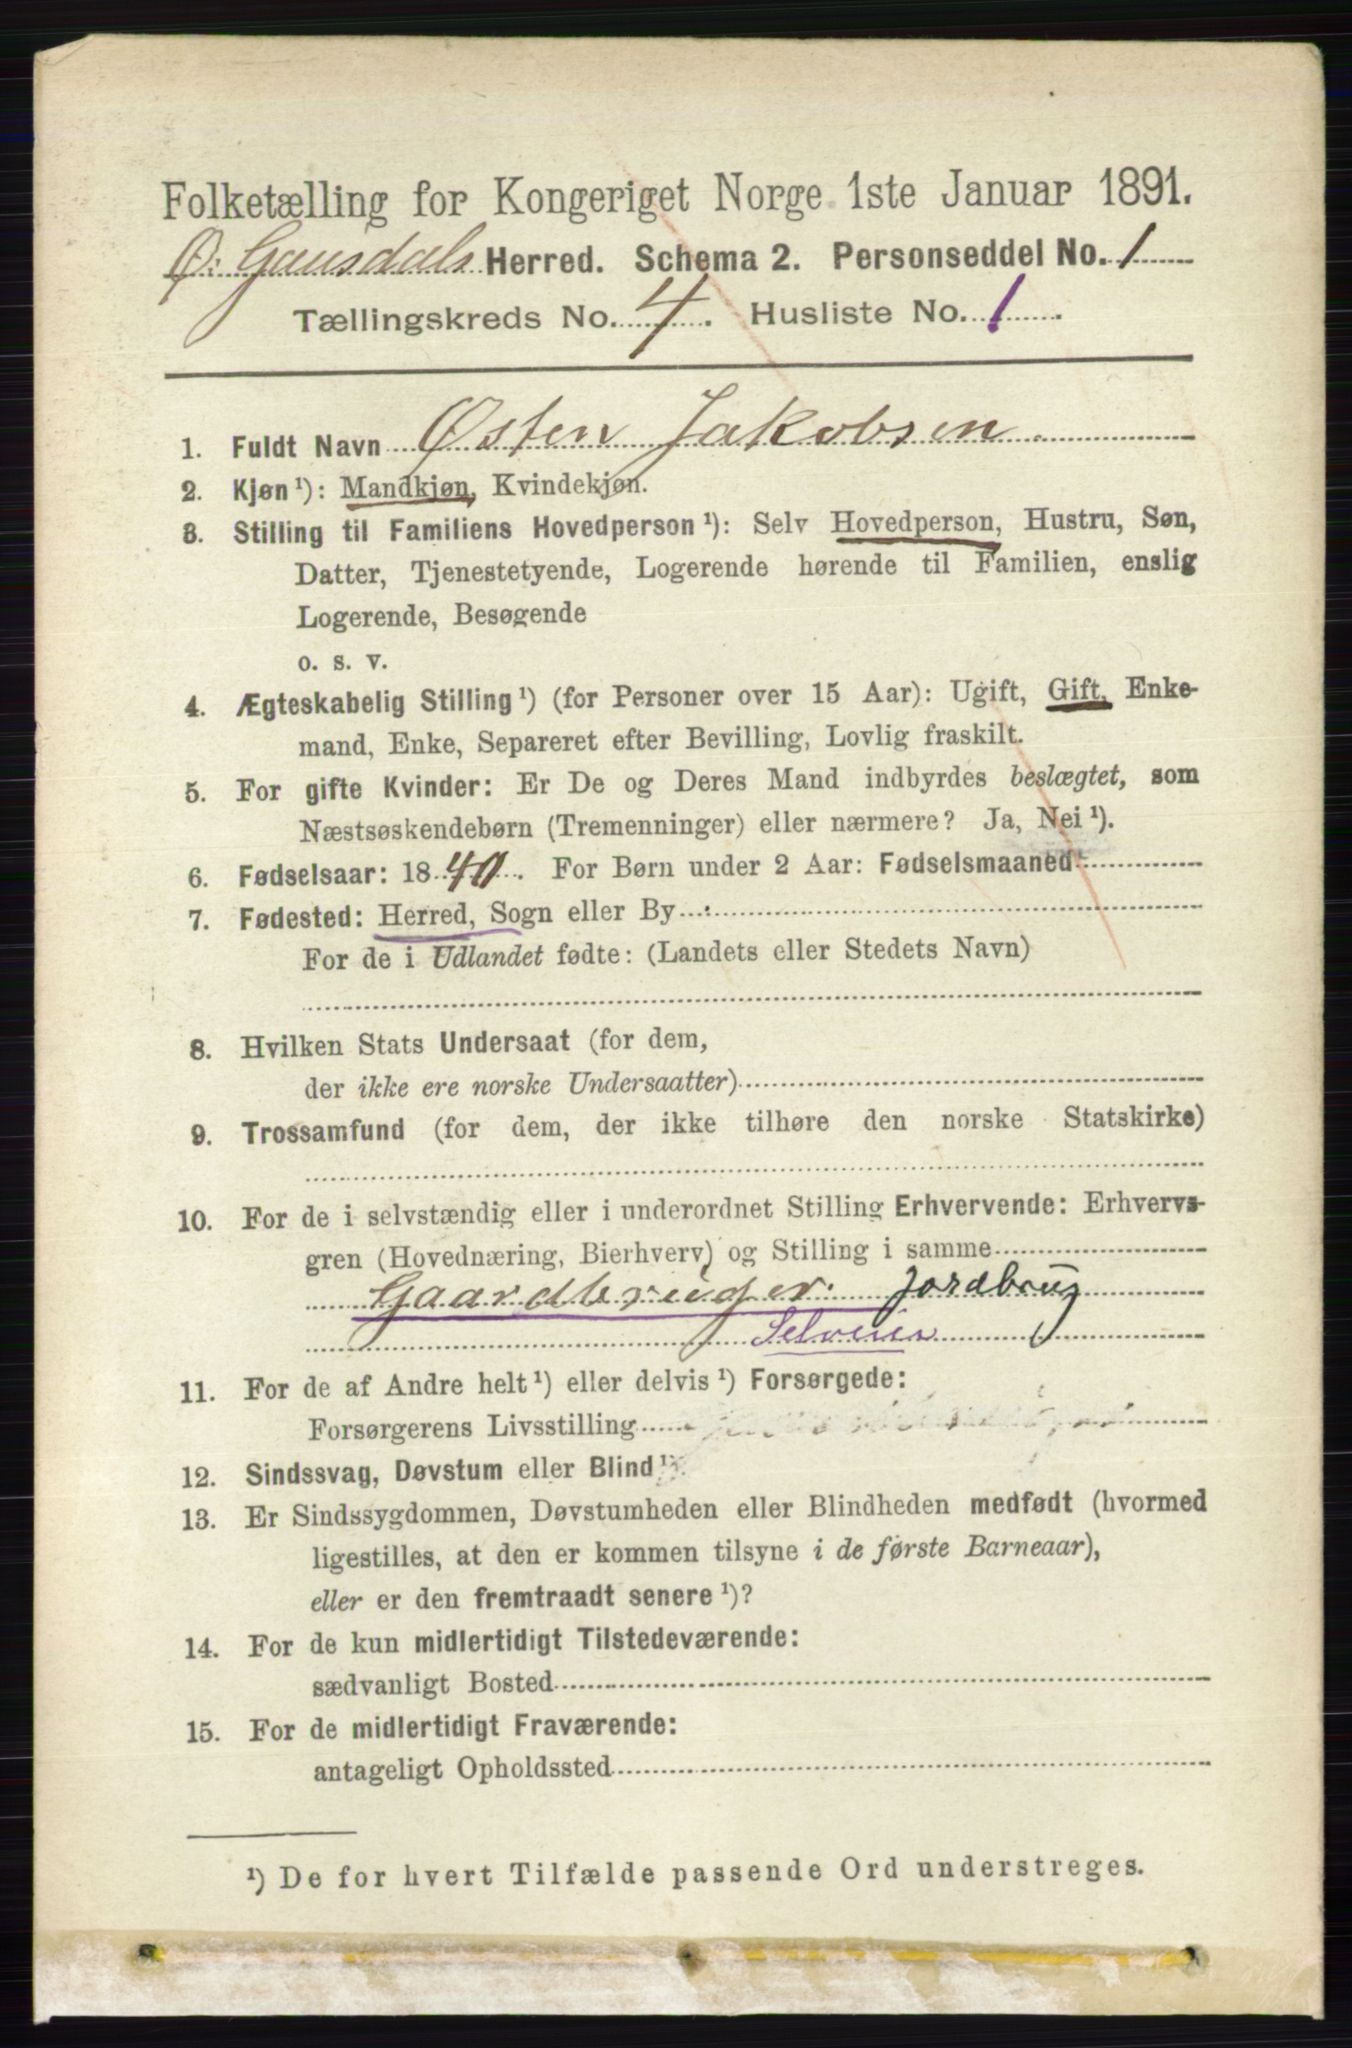 Folketælling for Kongeriget Norge 1ste Januar 1891.
Ø: Gausdals Herred. Schema 2. Personseddel No. 1
Tællingskreds No. 4. Husliste No. 1.
1. Fuldt Navn Østen Jakobsen
2. Kjøn¹): Mandkjøn, Kvindekjøn.
3. Stilling til Familiens Hovedperson¹): Selv Hovedperson, Hustru, Søn,
Datter, Tjenestetyende, Logerende hørende til Familien, enslig
Logerende, Besøgende
o. s. v.
4. Ægteskabelig Stilling¹) (for Personer over 15 Aar): Ugift, Gift, Enke-
mand, Enke, Separeret efter Bevilling, Lovlig fraskilt.
5. For gifte Kvinder: Er De og Deres Mand indbyrdes beslægtet, som
Næstsøskendebørn (Tremenninger) eller nærmere? Ja, Nei¹).
6. Fødselsaar: 1840. For Børn under 2 Aar: Fødselsmaaned
7. Fødested: Herred, Sogn eller By
For de i Udlandet fødte: (Landets eller Stedets Navn)
8. Hvilken Stats Undersaat (for dem,
der ikke ere norske Undersaatter)
9. Trossamfund (for dem, der ikke tilhøre den norske Statskirke)
10. For de i selvstændig eller i underordnet Stilling Erhvervende: Erhvervs-
gren (Hovednæring, Bierhverv) og Stilling i samme
Gaardbruger. Jordbrug
Selveier
11. For de af Andre helt¹) eller delvis¹) Forsørgede:
Forsørgerens Livsstilling
12. Sindssvag, Døvstum eller Blind¹).
13. Er Sindssygdommen, Døvstumheden eller Blindheden medfødt (hvormed
ligestilles, at den er kommen tilsyne i de første Barneaar),
eller er den fremtraadt senere¹)?
14. For de kun midlertidigt Tilstedeværende:
sædvanligt Bosted
15. For de midlertidigt Fraværende:
antageligt Opholdssted
¹) De for hvert Tilfælde passende Ord understreges.